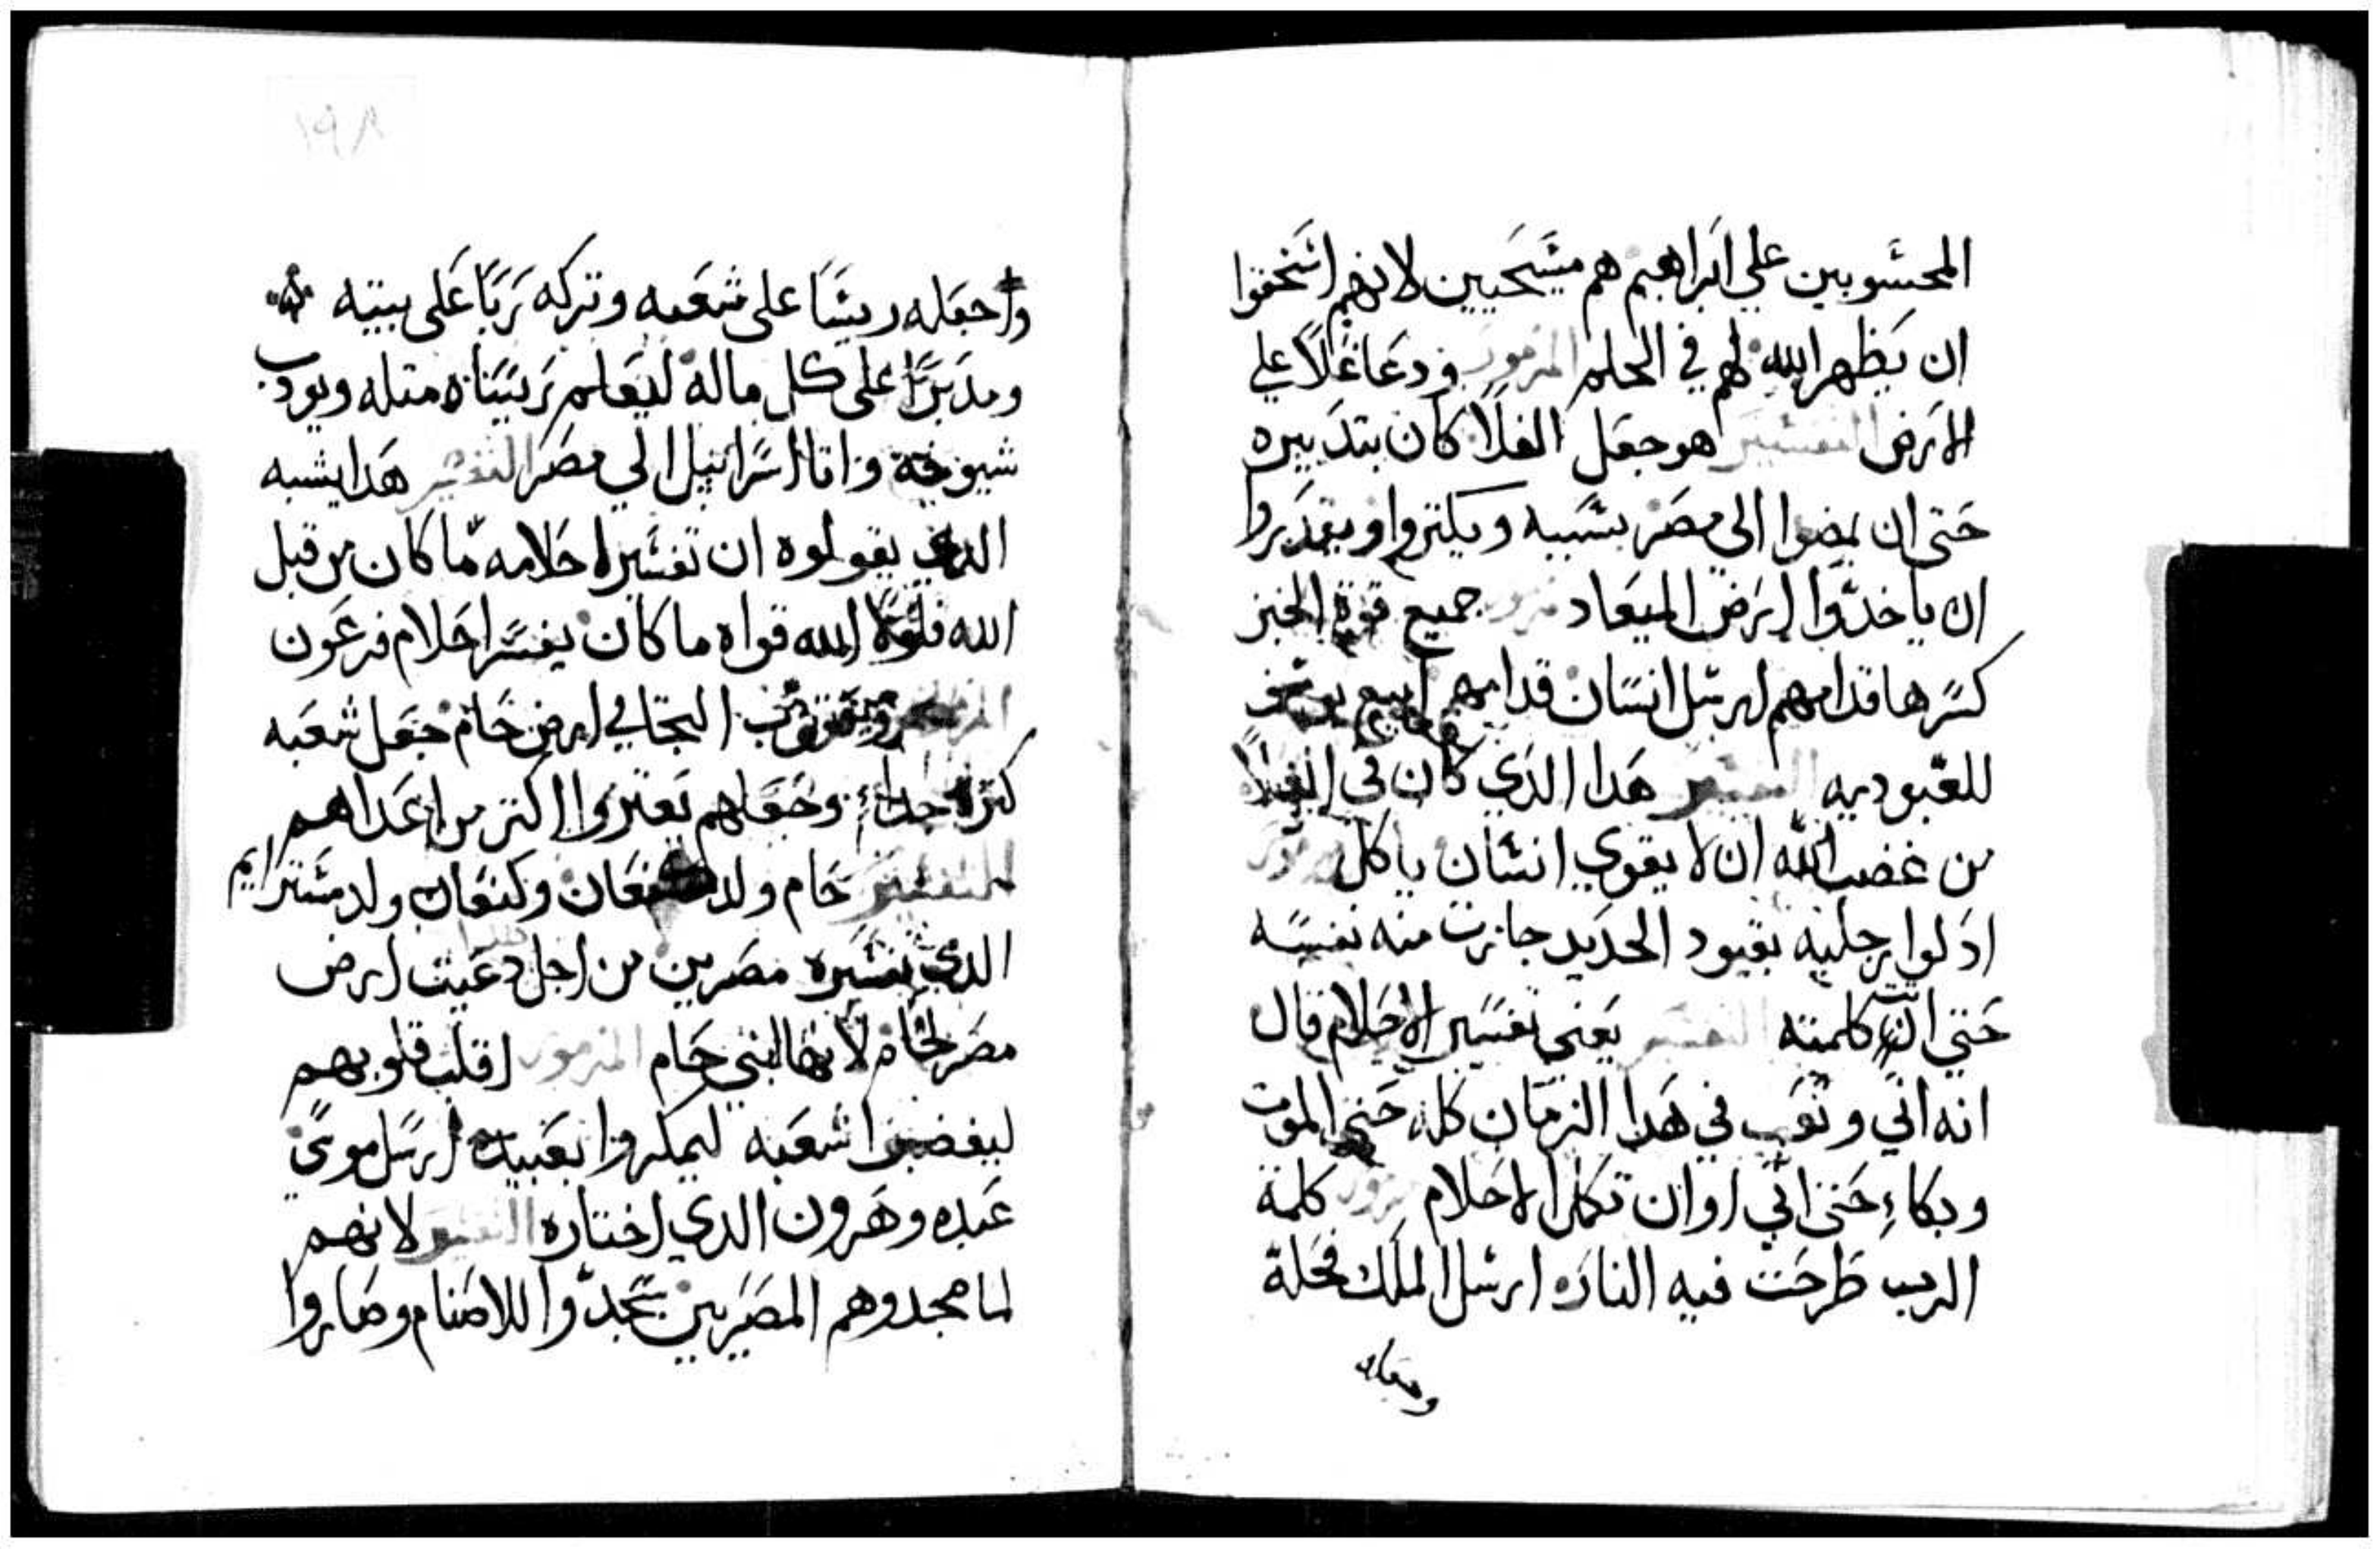 المحسوبين علي ابراهيم هم مسيحيين لانهم استحقوا
ان يظهر الله لهم في الحلم المزمور ودعا غلاً علي
الارض التفسير هو جعل الغلا كان بتدبيره
حتى ان يمضوا الي مصر بسببه ويكتروا ويقدروا
ان ياخدوا ارض الميعاد مزمور جميع قوة الخبز
كسرها قدامهم ارسل انسان قدامهم ابيع يوسف
للعبوديه التفسير هدا الدي كان في الغلا
من غضب الله ان لا يقوي انسان ياكل مزمور
ادلوا رجليه بقيود الحديد جازت منه نفسه
حتي اتت كلمته التفسير يعني تفسير الاحلام قال
انه اني وتعب في هدا الزمان كله حتي الموت
وبكاء حتى اتي اوان تكلم الاحلام مزمور كلمة
الرب طرحت فيه النار ارسل الملك فحله
وجعله
واجعله ريسا على شعبه وتركه ربا على بيته
ومدبرا على كل ماله ليعلم رييساه متله ويودب
شيوخه واتا اسراييل الي مصر التفسير هدا يشبه
الدي يقولوه ان تفسير احلامه ما كان من قبل
الله فلولا الله قواه ما كان يفسر احلام فرعون
المزمور ويعقوب التجا في ارض حام جعل شعبه
كتره جدا وجعلهم يعتزوا اكتر من اعداهم
التفسير حام ولد كنعان وكنعان ولد مستراييم
الدي تفسيره مصرين من اجل دعيت ارض
مصر لحام لانها لبني حام المزمور اقلب قلوبهم
ليغضبوا شعبه ليمكروا بعبيده ارسل موسى
عبده وهرون الدي اختاره التفسير لانهم
لما مجدوهم المصريين سجدوا للاصنام وصاروا